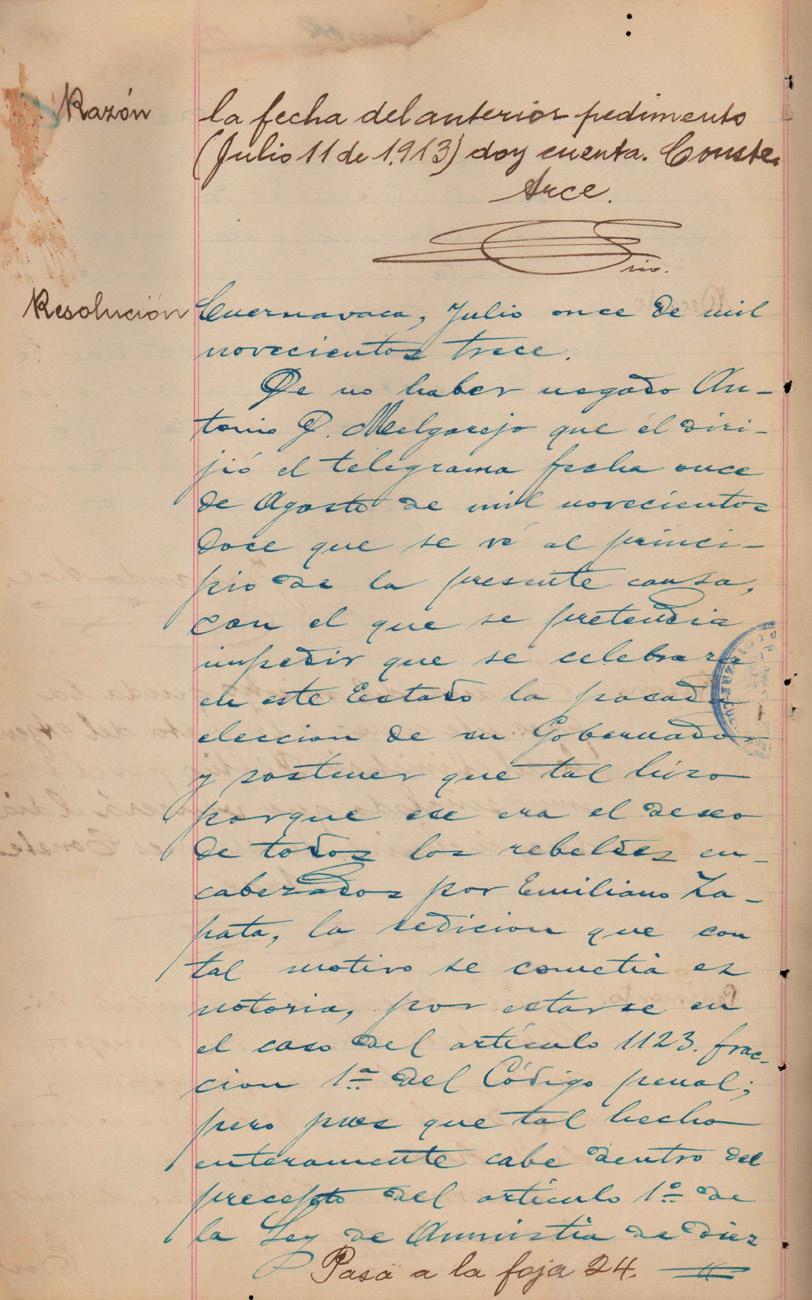 Razón
la fecha del anterior pedimento
(Julio 11 de 1,913) doy cuenta. Conste.
Arce.
Srio.
Resolución
Cuernavaca, Julio once de mil
novecientos trece.
De no haber negado An-
tonio P. Melgarejo que él diri-
jió el telegrama fecha once
de Agosto de mil novecientos
doce que se vé al princi-
pio de la presente causa,
con el que se pretendia
impedir que se celebrara
en este Estado la pasada
eleccion de su Gobernador
y sostener que tal hizo
porque ese era el deseo
de todos los rebeldes en-
cabezados por Emiliano Za-
pata, la sedicion que con
tal motivo se cometia es
notoria, por estarse en
el caso del artículo 1123. frac-
cion 1ª del Código penal;
pero pues que tal hecho
enteramente cabe dentro del
precepto del artículo 1º de
la Ley de Amnistia de diez
Pasa a la foja 24.